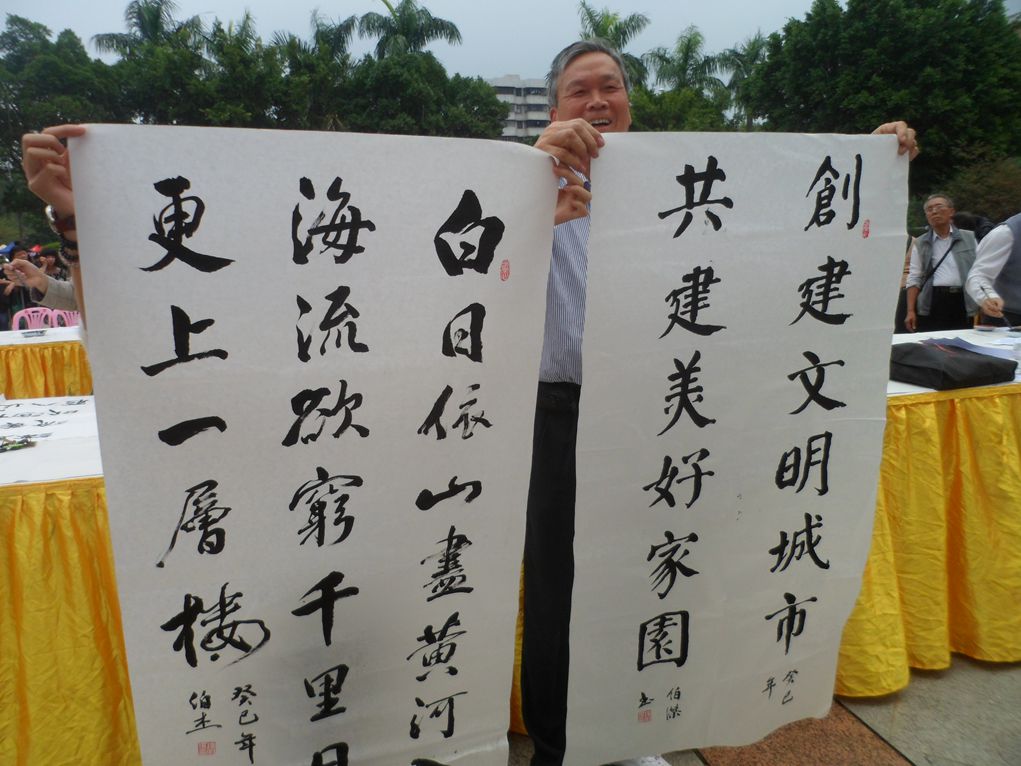 創建文明城市
癸巳
年
共建美好家園
伯傑
书
白日依山盡黄河
海流欲窮千里
更上一層楼
癸巳年
伯杰